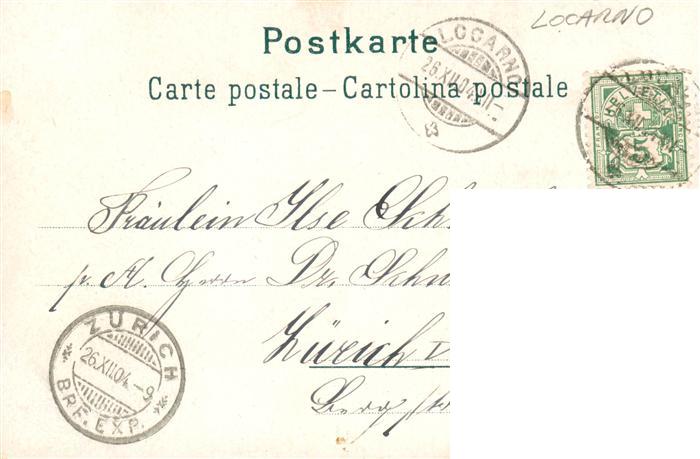 LOCARNO
Postkarte
Carte postale – Cartolina postale
LOCARNO
26.XII.04.XI-
HELVETIA
5
Fräulein Ilse Sch
p. A. Herrn Dr. Schu
Zürich
Berg
ZÜRICH
26.XII.04.-9
BRF. EXP.